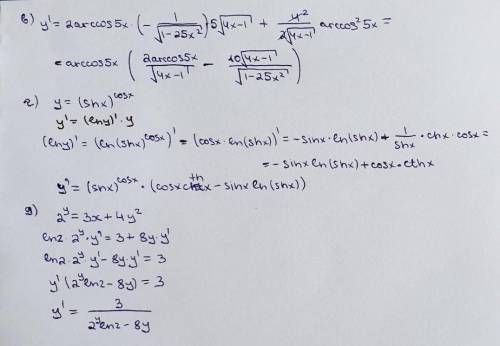 в) y' = 2arccos5x · (− 1/√(1−25x²)) · 5√(4x−1) + 4²/(2√(4x−1)) arccos²5x =
= arccos5x ( 2arccos5x/√(4x−1) − 10√(4x−1)/√(1−25x²) )
г) y = (shx)^cosx
y' = (lny)' · y
(lny)' = (ln(shx)^cosx)' = (cosx · ln(shx))' = −sinx · ln(shx) + 1/shx · chx · cosx =
= −sinx ln(shx) + cosx · cthx
y' = (shx)^cosx · (cosx cthx − sinx ln(shx))
д) 2^y = 3x + 4y²
ln2 · 2^y · y' = 3 + 8y · y'
ln2 · 2^y · y' − 8y · y' = 3
y' (2^y ln2 − 8y) = 3
y' = 3/(2^y ln2 − 8y)